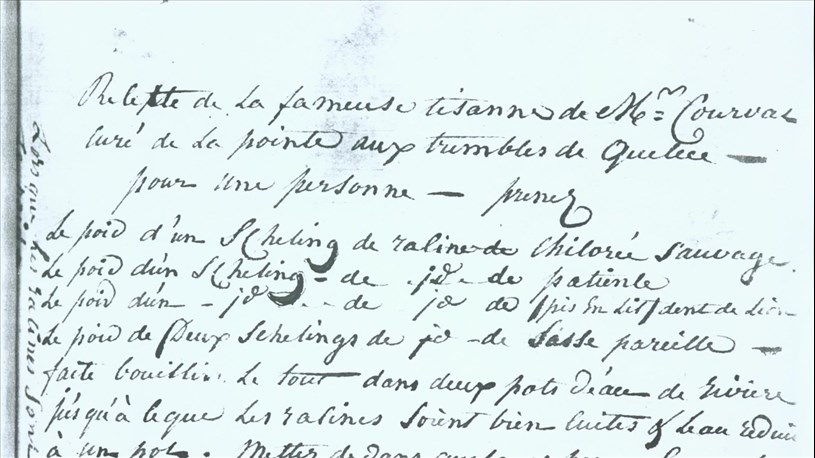 Recepte de la fameuse tisanne de Mr. Courval
curé de la pointe aux trembles de Quebec —
pour une personne — prenez
Le poid d'un Scheling de racine de Chicorée Sauvage.
Le poid d'un Scheling - de jd. - de patience
Le poid d'un - jd - de jd de (pis en Lit) dent de Lion
Le poid de (Deux Schelings de jd - de Sasse pareille —
faite bouillir Le tout dans deux pots d'eau de riviere
jusqu'à ceque Les racines Soient bien cuites & Leau reduit
à un pot. Mettez dedans
Lorsque Les racines Sont